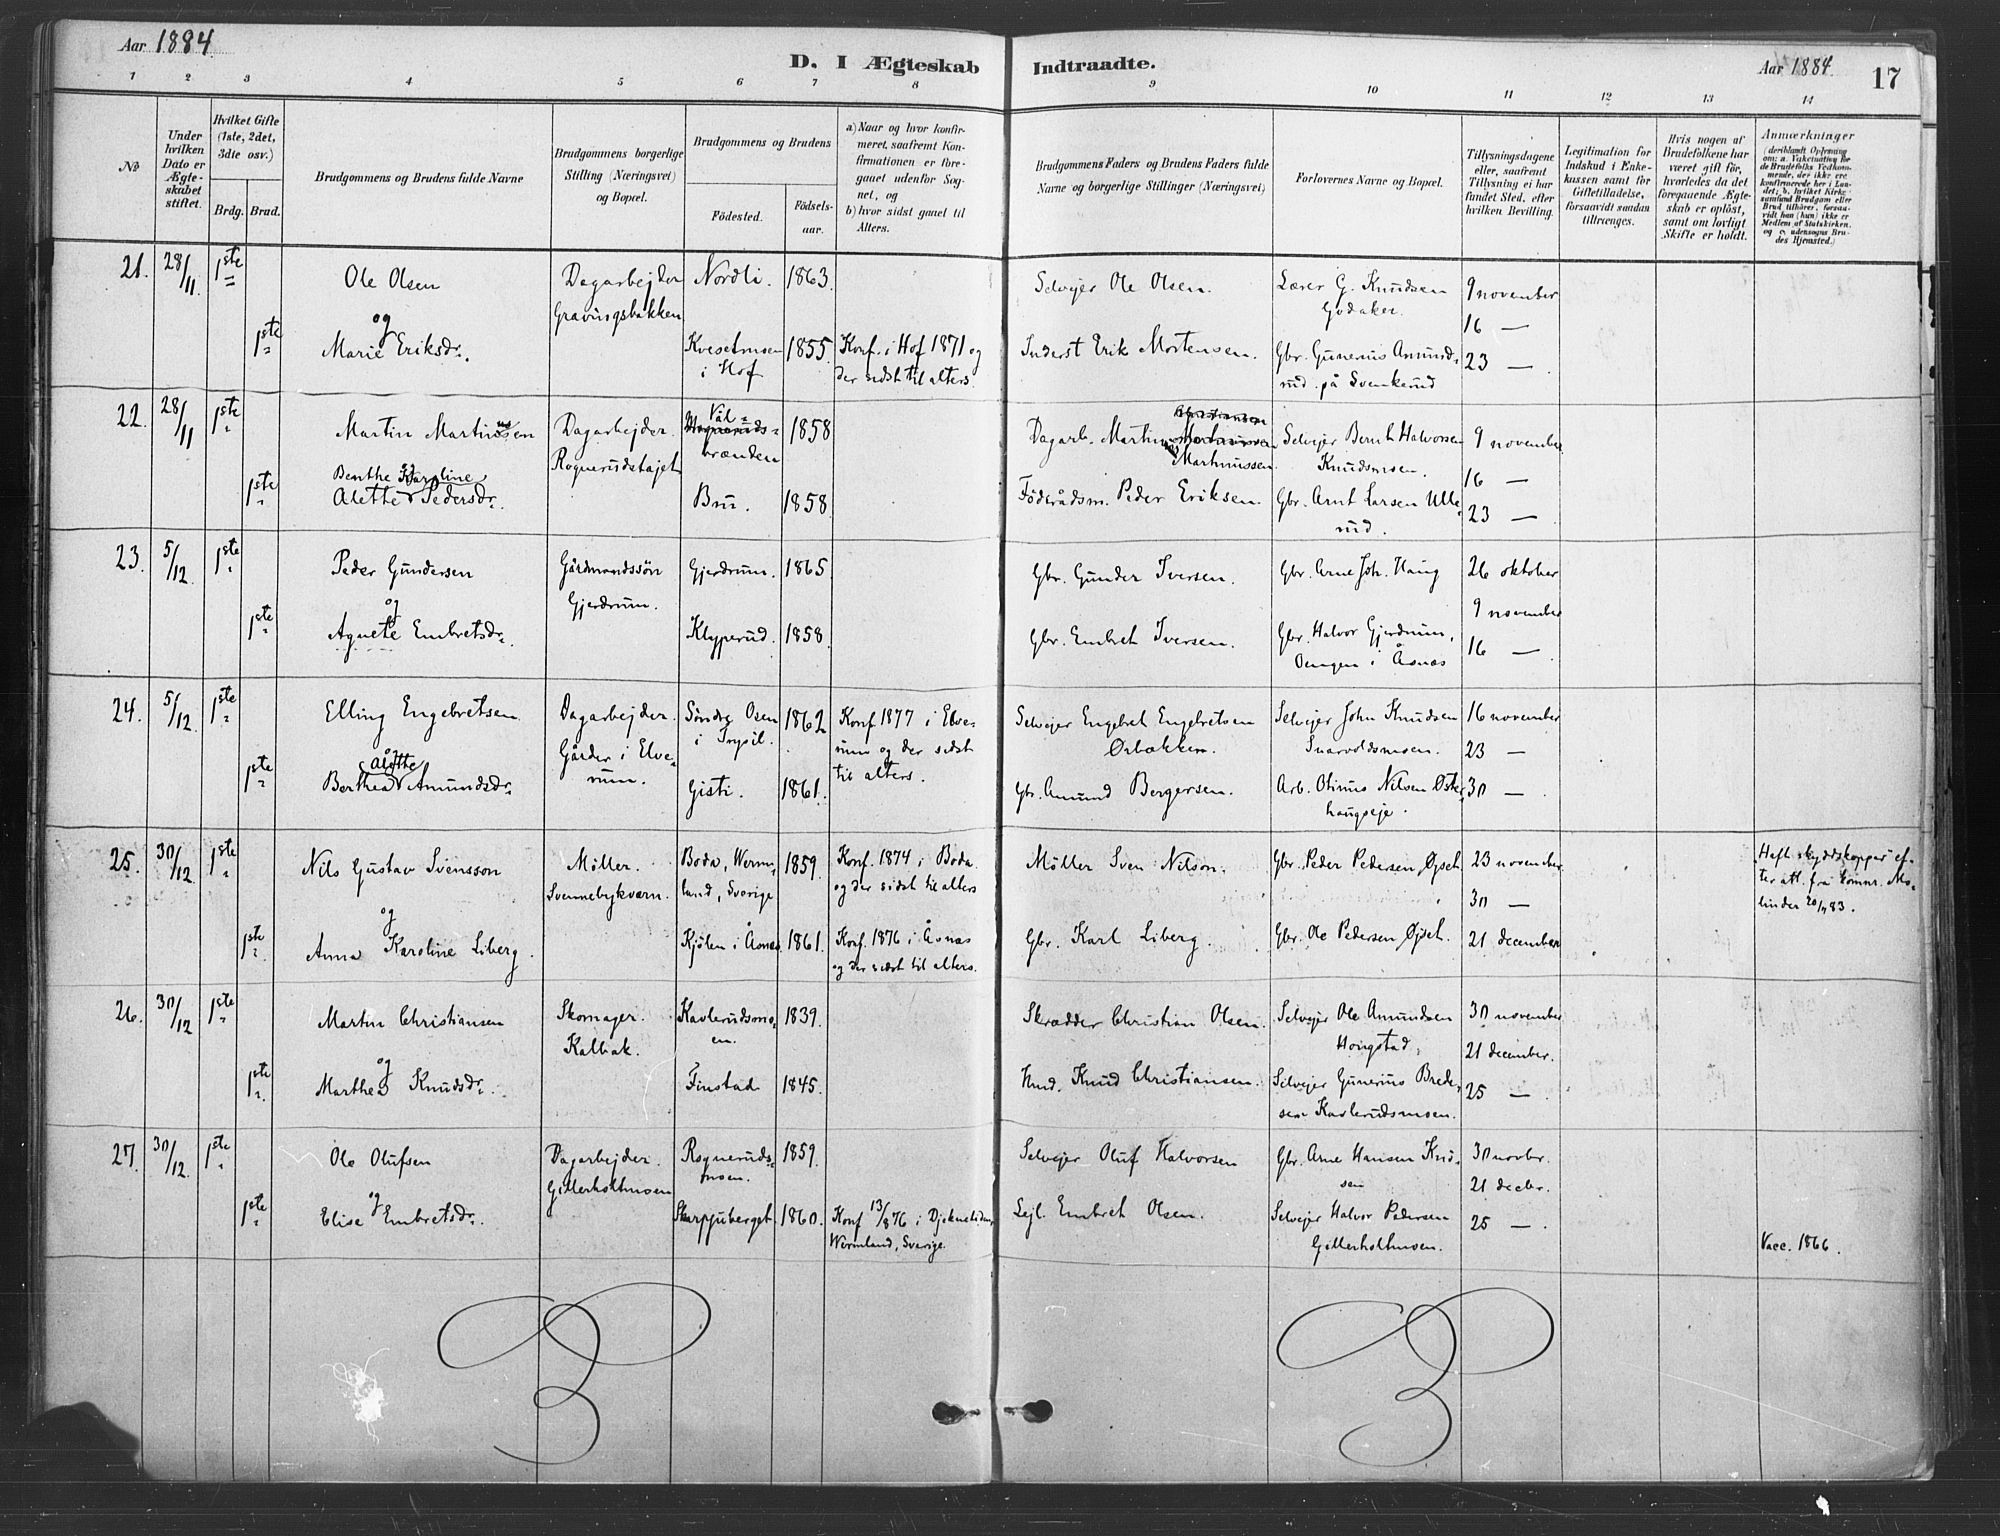 Aar 1884.
D. I Ægteskab Indtraadte.
Aar 1884. 17
1 2 3 4 5 6 7 8 9 10 11 12 13 14
No
Under hvilken Dato er Ægteskabet stiftet.
Hvilket Gifte (1ste, 2det, 3die osv.)
Brdg. Brud.
Brudgommens og Brudens fulde Navne
Brudgommens borgerlige Stilling (Næringsvei) og Bopæl.
Brudgommens og Brudens
Fødested. Fødselsaar.
a) Naar og hvor konfirmeret, saafremt Konfirmationen er foregaaet udenfor Sognet, og
b) hvor sidst gaaet til Alters.
Brudgommens Faders og Brudens Faders fulde Navne og borgerlige Stillinger (Næringsvei)
Forlovernes Navne og Bopæl.
Tillysningsdagene eller, saafremt Tillysning ei har fundet Sted, efter hvilken Bevilling.
Legitimation for Indskud i Enkekassen samt for Giftetilladelse, forsaavidt saadan tiltrænges.
Hvis nogen af Brudefolkene har været gift før, hvorledes da det foregaaende Ægteskab er opløst, samt om lovligt Skifte er holdt.
Anmærkninger (deriblandt Oplysning om: a. Vakcination for de Brudefolks Vedkommende, der ikke ere konfirmerede her i Landet; b. hvilket Kirkesamfund Brudgom eller Brud tilhører, forsaavidt han (hun) ikke er Medlem af Statskirken, og c. udensogns Brudes Hjemsted.)
21. 28/11. 1ste Ole Olsen Dagarbejder Nordli. 1863. Selvejer Ole Olsen. Lærer G. Knudsen 9 november
og Gravingsbakken Godaker. 16 —
1ste Marie Eriksdr. Kvesetmoen 1855. Konf. i Hof 1871 og Inderst Erik Mortensen. Gbr. Gunerius Amunds= 23 —
i Hof der sidst til alters. rud på Svenkerud
22. 28/11 1ste Martin Martinussen Dagarbejder. Vål= 1858 Dagarb. Martinus Martinussen. Selvejer Bernt Halvorsen 9 november
brænden Rognerudstajet Knudsmoen. 16 —
Benthe Karoline
1ste Alethe Pedersdr. Bru. 1858. Föderådsm. Peder Eriksen. Gbr. Arnt Larsen Ulle= 23 —
rud.
23. 5/12. 1ste Peder Gundersen Gårdmandssön Gjerdrum. 1865 Gbr. Gunder Iversen. Gbr. Arne Joh. Haug 26 oktober
og Gjerdrum. 9 november
1ste Agnete Embretsdr. Klyperud. 1858. Gbr. Embret Iversen. Gbr. Halvor Gjerdrum, 16 —
i Åsnæs
24. 5/12. 1ste Elling Engebretsen Dagarbejder. Söndre Osen 1862 Konf. 1877 i Elve= Selvejer Engebret Engebretsen Selvejer John Knudsen 16 november
og Gårder i Elve= i Trysil. rum og der sidst Örbækken. Snarvoldsmoen. 23 —
Alette rum. til alters.
1ste Berthea Amundsdr. Gisti. 1861. Gbr. Amund Bergersen. Arb. Otinus Nilsen Öster 30 —
haugseje.
25. 30/12. 1ste Nils Gustav Svensson Möller. Boda, Werm= 1859. Konf. 1874 i Boda Möller Sven Nilson. Gbr. Peder Pedersen Öjset. 23 november „Haft skyddskoppor" ef=
Svennebykværn. land, Sverige og der sidst til alters 30 — ter att. frå Komnr. Mo=
og linder 20/7 83.
1ste Anna Karoline Liberg. Kjölen i Åsnæs. 1861. Konf. 1876 i Åsnæs Gbr. Karl Liberg. Gbr. Ole Pedersen Öjset. 21 december
og der sidst til alters.
26. 30/12 1ste Martin Christiansen Skomager. Kavlerudsmo= 1839. Skrædder Christian Olsen. Selvejer Ole Amundsen 30 november
og Kalbak. en. Hougstad. 21 december.
1ste Marthea Knudsdr. Finstad 1845. Knud Christiansen. Selvejer Gunerius Brede= 25 —
sen Kavlerudsmoen.
27. 30/12. 1ste Ole Olufsen Dagarbejder. Rogneruds= 1859. Selvejer Oluf Halvorsen Gbr. Arne Hansen Knu= 30 novbr.
og Gitterholtmoen moen. sen 21 decbr.
1ste Elise Embretsdr. Skarpjuberget. 1860. Konf 13/8 76 i Lejl. Embret Olsen. Selvejer Halvor Pedersen 25 —
Wermland, Sverige. Gitterholtmoen. Vacc. 1866.